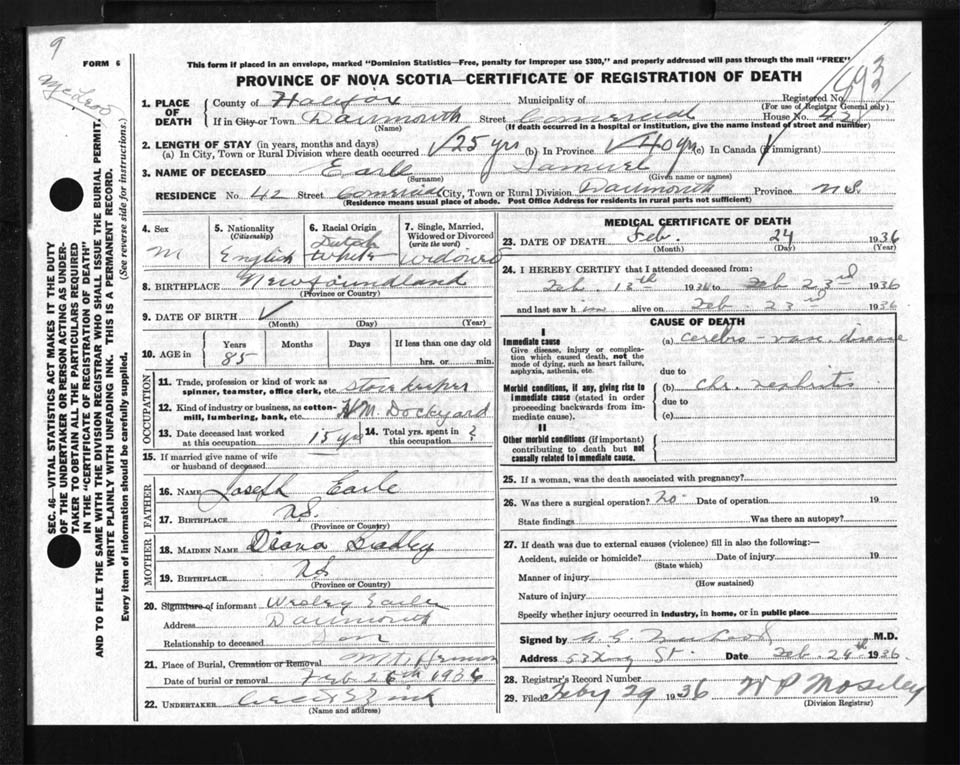 9
FORM 6
This form if placed in an envelope, marked "Dominion Statistics—Free, penalty for improper use $300," and properly addressed will pass through the mail "FREE"
PROVINCE OF NOVA SCOTIA—CERTIFICATE OF REGISTRATION OF DEATH
Registered No.
(For use of Registrar General only)
1. PLACE OF DEATH
County of Halifax Municipality of
If in City or Town Dartmouth Street Comercial House No. 42
(Name) (If death occurred in a hospital or institution, give the name instead of street and number)
2. LENGTH OF STAY (in years, months and days)
(a) In City, Town or Rural Division where death occurred 25 yrs (b) In Province 40 yrs (c) In Canada (if immigrant)
3. NAME OF DECEASED Earle Samuel
(Surname) (Given name or names)
RESIDENCE No. 42 Street Comercial City, Town or Rural Division Dartmouth Province N.S.
(Residence means usual place of abode. Post Office Address for residents in rural parts not sufficient)
4. Sex
M
5. Nationality
(Citizenship)
English
6. Racial Origin
Dutch
White
7. Single, Married, Widowed or Divorced
(write the word)
Widowed
8. BIRTHPLACE Newfoundland
(Province or Country)
9. DATE OF BIRTH
(Month) (Day) (Year)
10. AGE in
Years Months Days If less than one day old
85
hrs. or min.
OCCUPATION
11. Trade, profession or kind of work as spinner, teamster, office clerk, etc. Store Keeper
12. Kind of industry or business, as cotton-mill, lumbering, bank, etc. H.M. Dockyard
13. Date deceased last worked at this occupation 15 yrs
14. Total yrs. spent in this occupation ?
15. If married give name of wife or husband of deceased
FATHER
16. NAME Joseph Earle
17. BIRTHPLACE N.S.
(Province or Country)
MOTHER
18. MAIDEN NAME Diana
19. BIRTHPLACE N.S.
(Province or Country)
20. Signature of informant Wesley Earle
Address Dartmouth
Relationship to deceased Son
21. Place of Burial, Cremation or Removal Mt. Hermon
Date of burial or removal Feb 26th 1936
22. UNDERTAKER Zink
(Name and address)
MEDICAL CERTIFICATE OF DEATH
23. DATE OF DEATH Feb. 24 1936
(Month) (Day) (Year)
24. I HEREBY CERTIFY that I attended deceased from:
Feb. 13th 1936 to Feb 23rd 1936
and last saw him alive on Feb. 23rd 1936
CAUSE OF DEATH
I
Immediate cause
Give disease, injury or complication which caused death, not the mode of dying, such as heart failure, asphyxia, asthenia, etc.
(a) Cerebro-vasc. disease
due to
Morbid conditions, if any, giving rise to immediate cause (stated in order proceeding backwards from immediate cause).
(b) Chr. nephritis
due to
(c)
II
Other morbid conditions (if important) contributing to death but not causally related to immediate cause.
25. If a woman, was the death associated with pregnancy?
26. Was there a surgical operation? No Date of operation 19
State findings Was there an autopsy?
27. If death was due to external causes (violence) fill in also the following:—
Accident, suicide or homicide? Date of injury 19
(State which)
Manner of injury
(How sustained)
Nature of injury
Specify whether injury occurred in industry, in home, or in public place
Signed by M.D.
Address 53 King St. Date Feb. 24th 1936
28. Registrar's Record Number
29. Filed Feby 29 1936 W P Moseley
(Division Registrar)
SEC. 46—VITAL STATISTICS ACT MAKES IT THE DUTY
OF THE UNDERTAKER OR PERSON ACTING AS UNDER-
TAKER TO OBTAIN ALL THE PARTICULARS REQUIRED
IN THE "CERTIFICATE OF REGISTRATION OF DEATH"
AND TO FILE THE SAME WITH THE DIVISION REGISTRAR WHO SHALL ISSUE THE BURIAL PERMIT.
WRITE PLAINLY WITH UNFADING INK. THIS IS A PERMANENT RECORD.
Every item of information should be carefully supplied. (See reverse side for instructions.)